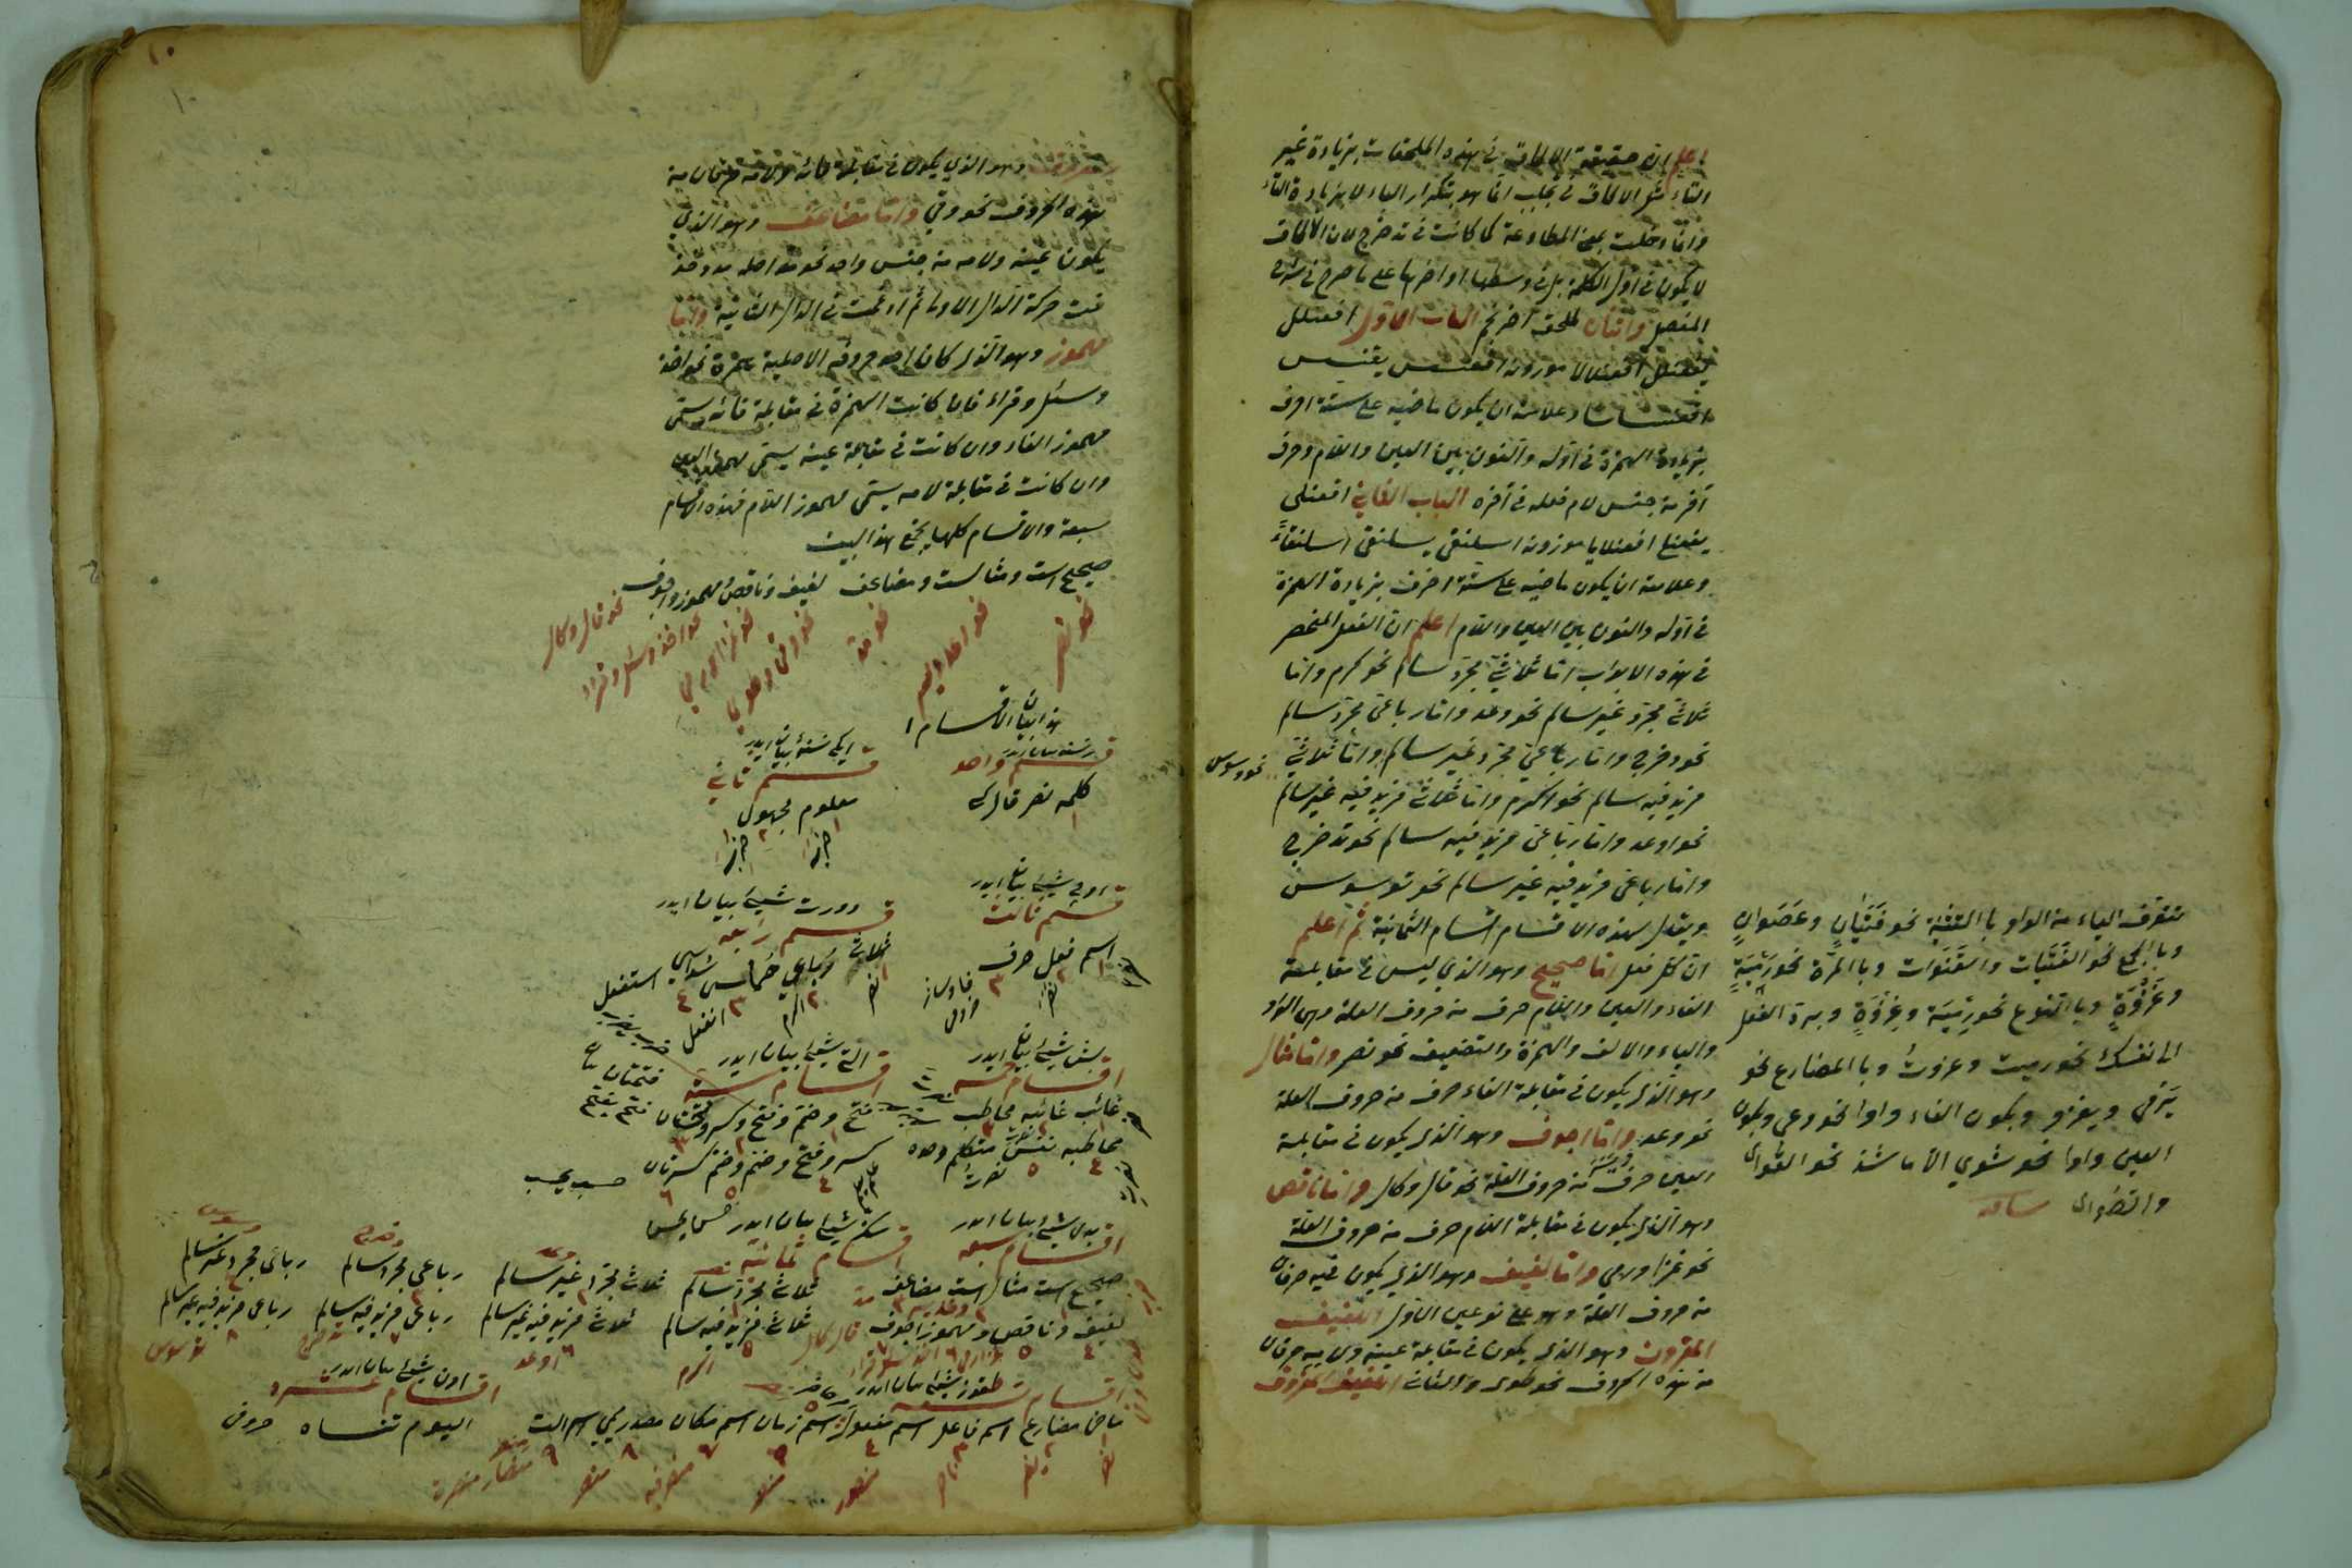 اعلم ان حقيقة الالحاق في هذه الملحقات بزيادة غير
التاء مثل الالحاق في تجلبب انما هو بتكرار الباء لا بزيادة التاء
وانما دخلت بمعنى المطاوعة كما كانت في تدحرج لان الالحاق
لا يكون في اول الكلمة بل في وسطها او اخرها على ما صرح في شرح
المفصل واثنان لملحق احرنجم الباب الاول افعنلل
يفعنلل افعنلالا موزونه اقعنسس يقعنسس
اقعنساسا وعلامته ان يكون ماضيه على ستة احرف
بزيادة الهمزة في اوله والنون بين العين واللام وحرف
آخر من جنس لام فعله في آخره الباب الثاني افعنلى
يفعنلي افعنلايا موزونه اسلنقى يسلنقي اسلنقاءً
وعلامته ان يكون ماضيه على ستة احرف بزيادة الهمزة
في اوله والنون بين العين واللام اعلم ان الفعل المنحصر
في هذه الابواب اما ثلاثيّ مجرّد سالم نحو كرم واما
ثلاثي مجرّد غير سالم نحو وعد واما رباعي مجرّد سالم
نحو دحرج واما رباعيّ مجرّد غير سالم واما ثلاثيّ
نحو وسوس
مزيد فيه سالم نحو اكرم واما ثلاثي مزيد فيه غير سالم
نحو اوعد واما رباعي مزيد فيه سالم نحو تدحرج
واما رباعي مزيد فيه غير سالم نحو توسوس
ويقال لهذه الاقسام اقسام الثمانية ثم اعلم
ان كل فعل اما صحيح وهو الذي ليس في مقابلة
الفاء والعين واللام حرف من حروف العلة وهي الواو
والياء والالف والهمزة والتضعيف نحو نصر واما مثال
وهو الذي يكون في مقابلة الفاء حرف من حروف العلة
نحو وعد واما اجوف وهو الذي يكون في مقابلة
العين حرف من حروف العلة نحو قال وكال واما ناقص
وهو الذي يكون في مقابلة اللام حرف من حروف العلة
نحو غزا ورمي واما لفيف وهو الذي يكون فيه حرفان
من حروف العلة وهو على نوعين الاول اللفيف
المقرون وهو الذي يكون في مقابلة عينه ولامه حرفان
من هذه الحروف نحو طوى والثاني اللفيف المفروق
تتعرف الياء من الواو با التثنية نحو فَتَيَانِ وعَصَوانِ
وبا الجمع نحو الفَتَيات والقَنَوات وبا المَرَّة نحو رَمْيَةٍ
وغَزْوَةٍ وبا النوع نحو رِمْيَة وغِزْوَةٍ وبردّ الفعل
الى نفسك نحو رميت وغزوتُ وبا المضارع نحو
يَرمي ويغزو وبكون الفاء واوا نحو وعى وبكون
العين واوا نحو شوي الا ما شذ نحو القُوى
والصُوى
١٠
وهو الذي يكون في مقابلة فائه ولامه حرفان من
هذه الحروف نحو وقي واما مضاعف وهو الذي
يكون عينه ولامه من جنس واحد نحو مدّ اصله مدد حذ
فت حركة الدال الاولى ثم ادغمت في الدال الثانية واما
مهموز وهو الذي كان احد حروفه الاصلية همزة نحو اخذ
وسئل وقراء فان كانت الهمزة في مقابلة فائه يسمى
مهموز الفاء وان كانت في مقابلة عينه يسمى مهموز العين
وان كانت في مقابلة لامه يسمى مهموز اللام فهذه اقسام
سبعة والاقسام كلها يجمع هذا البيت
صحيح است ومثالست ومضاعف لفيف وناقص ومهموز واجوف
نحو نصر
نحو مد
نحو اخذ وسئل وقراء
نحو قال وكال
هذا بيان الاقسام
قسم واحد
كلمه نصر قال
ايكى شيئ بيان ايدر
قسم ثاني
معلوم مجهول
اوچ شيئى بيان ايدر
قسم ثالث
اسم فعل حرف
دورت شيئى بيان ايدر
قسم رابعه
ثلاثي رباعي خماسي سداسي
نصر اكرم انفعل استفعل
بش شيئى بيان ايدر
اقسام خمسه
غائب غائبه مخاطب
مخاطبه نفس متكلم وحده
التي شيئى بيان ايدر
اقسام ستة
فتح وضم وفتح وكسر وفتحتان
كسر وفتح وضم وضم كسرتان
فتح يفتح
حسب يحسب
يدي شيئى بيان ايدر
اقسام سبعه
صحيح است مثال است مضاعف
لفيف وناقص ومهموز اجوف
سكز شيئى بيان ايدر
اقسام ثمانيه
ثلاثي مجرّد سالم ثلاثي مجرّد غير سالم رباعي مجرد سالم رباعي مجرد غير سالم
ثلاثي مزيد فيه سالم ثلاثي مزيد فيه غير سالم رباعي مزيد فيه سالم رباعي مزيد فيه غير سالم
اكرم اوعد تدحرج توسوس
طقوز شيئى بيان ايدر
اقسام تسعه
ماضي مضارع اسم فاعل اسم مفعول اسم زمان اسم مكان مصدر ميمي اسم الت
اون شيئى بيان ايدر
اقسام عشره
اليوم تنساه حروف